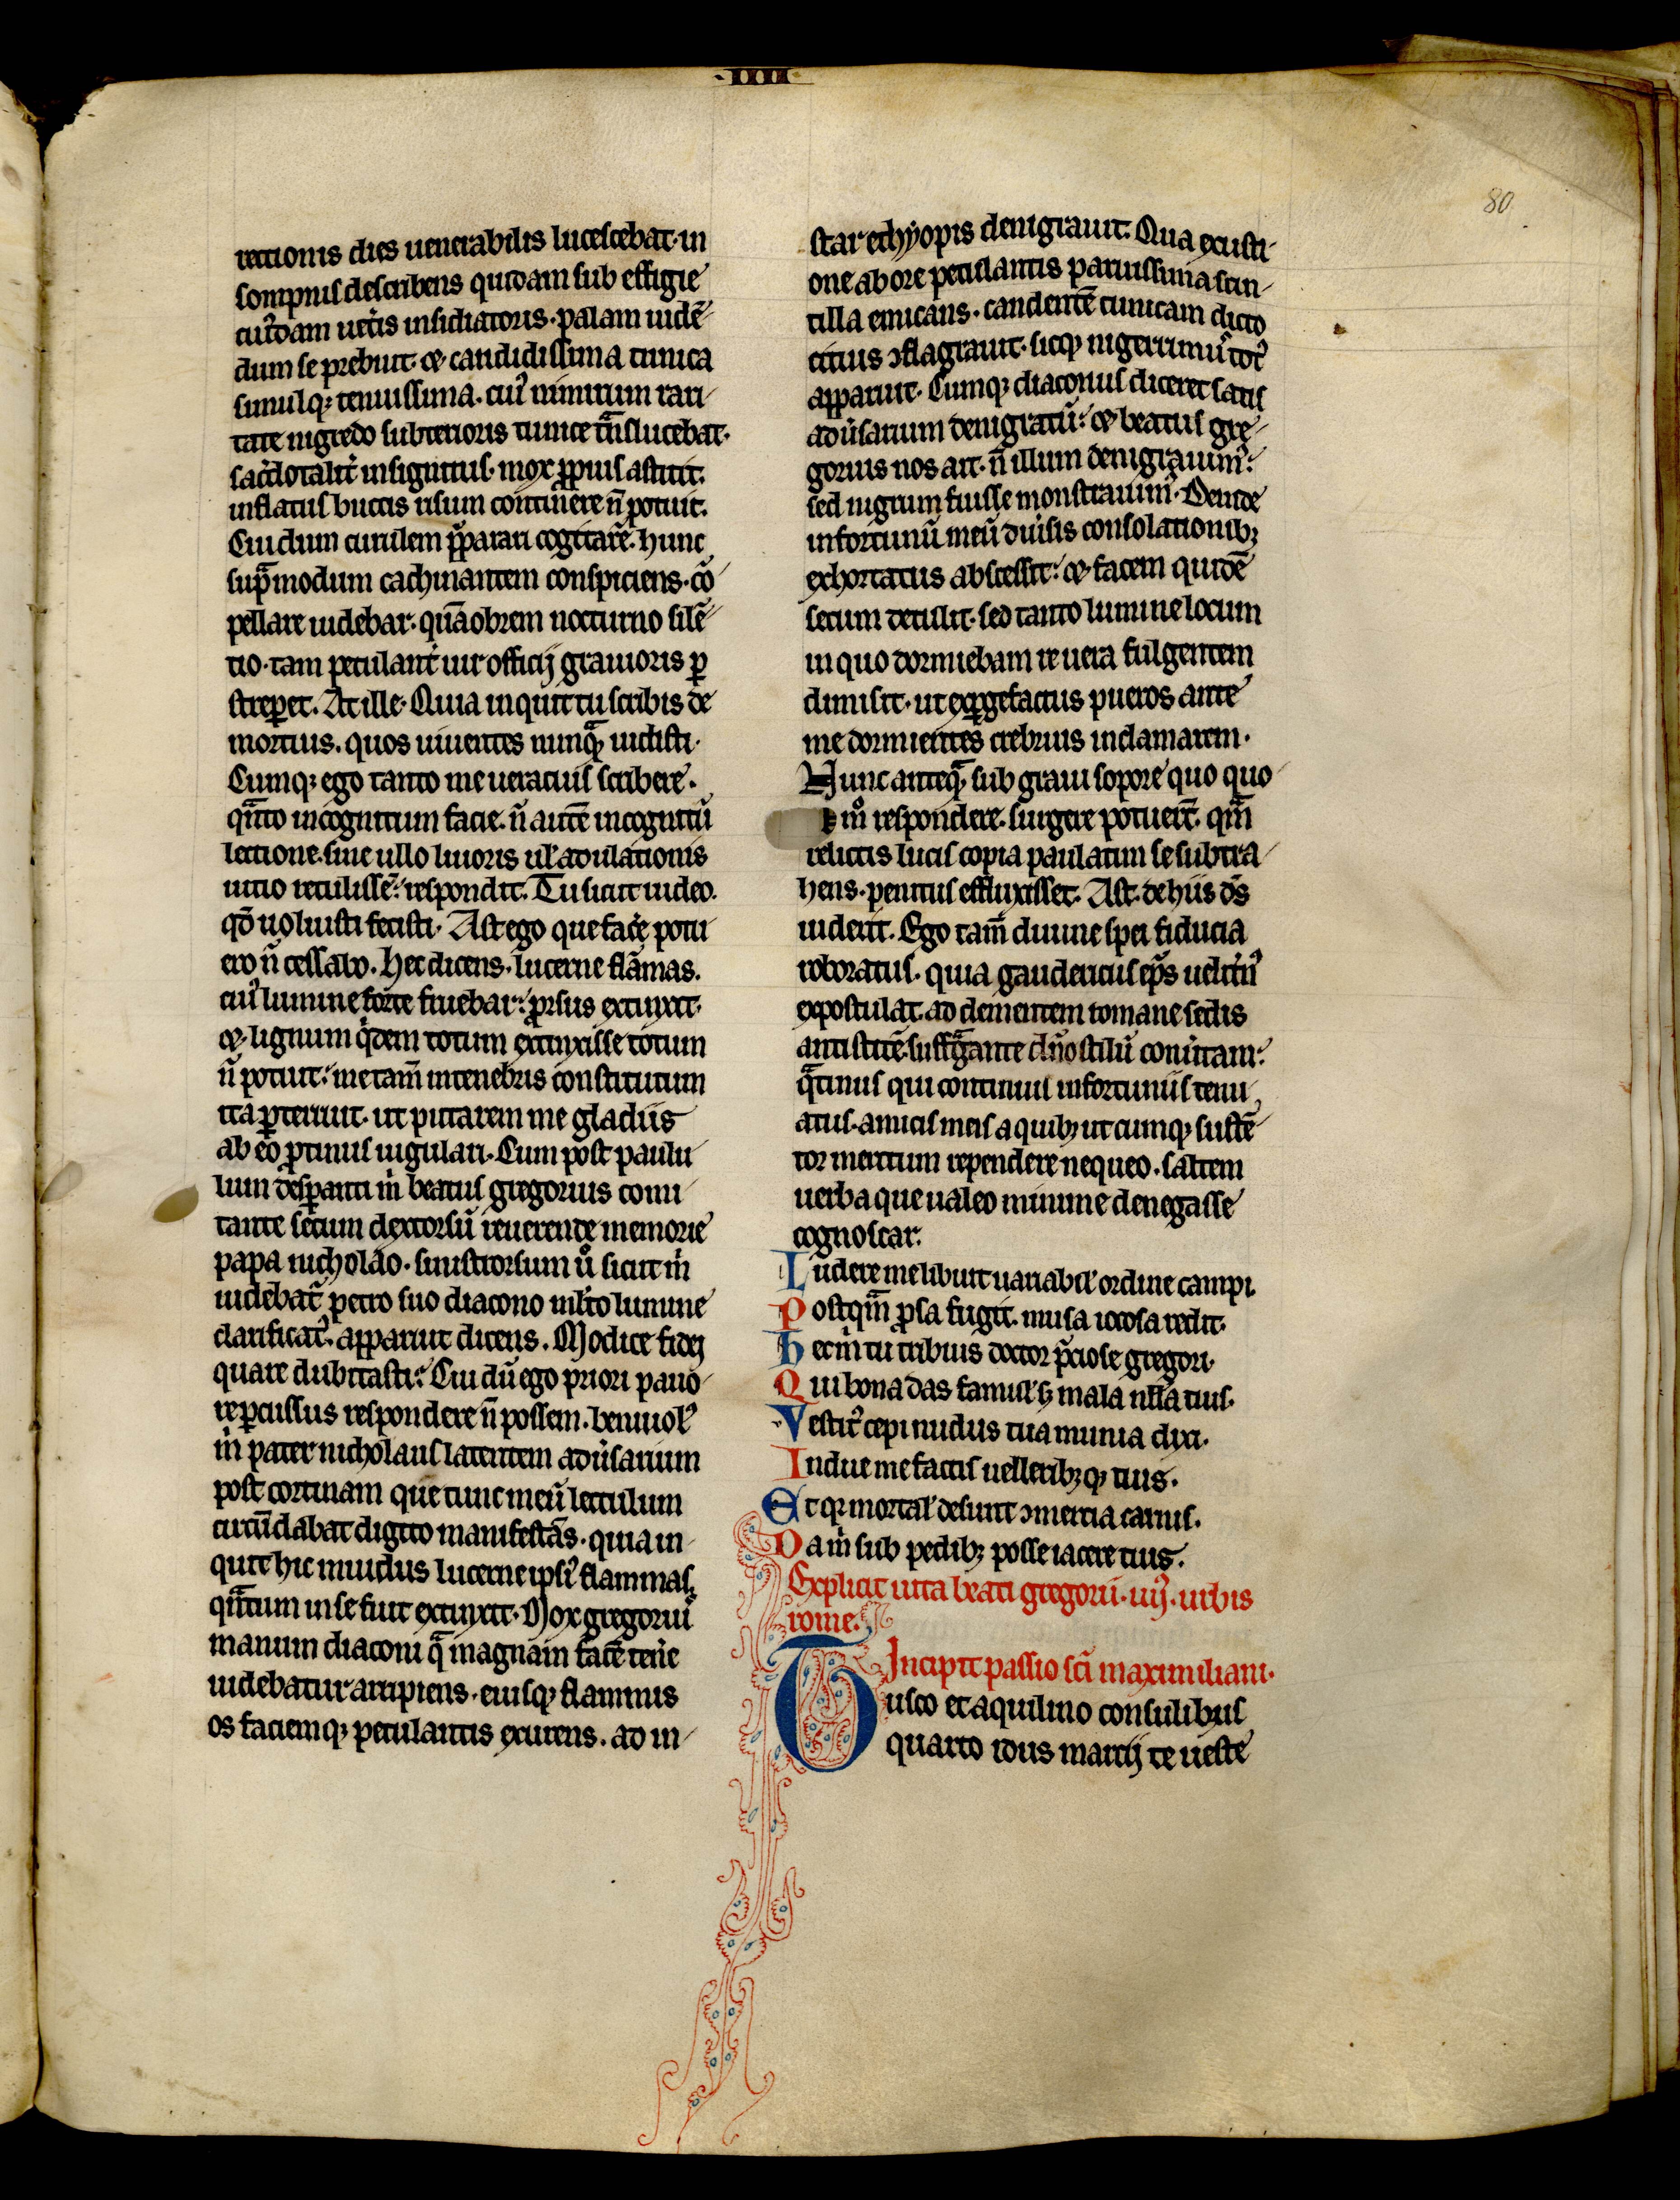 IIII
80
rectionis dies uenerabilis lucescebat. in
sompnis describens quidam sub effigie
cuiꝰdam uet̾is insidiatoris. palam uidē
dum se prebuit. et candidissima tunica
simulqꝫ tenuissima. cuiꝰ nimirum rari
tate nigredo subterioris tunice tͣnslucebat.
sac̾dotalit̾ insignitus. mox ꝓpius astitit.
inflatus buccis risum continere n̄ potuit.
Cui dum curulem p̄parari cogitarē. hunc
supͣ modum cachinantem conspiciens. cō
pellare uidebar. quāobrem nocturno silē
tio. tam petulant̾ uir officij grauioris ꝑ
streꝑet. At ille. Quia inquit tu scribis de
mortuis. quos uiuentes nunqͣꝫ uidisti.
Cumqꝫ ego tanto me ueracius scribere.
qͣnto incognitum facie. n̄ autē incognitū
lectione. sine ullo liuoris ul̾ adulationis
uitio retulissē. respondit. Tu sicut uideo.
qd̄ uoluisti fecisti. Ast ego que fac̾e potu
ero n̄ cessabo. Hec dicens. lucerne flāmas.
cuiꝰ lumine forte fruebar. prsus extinxit.
et lignum qͥdem totum extinxisse totum
n̄ potuit. me tam̄ in tenebris constitutum
ita ꝑterruit. ut putarem me gladiis
ab eo ꝓtinus iugulari. Cum post paulu
lum desꝑanti m̍ beatus gregorius comi
tante secum dextorsū reuerende memorie
papa nicholao. sinistrorsum uͦ sicut m̍
uidebat̾ petro suo diacono inl̾ito lumine
clarificatꝰ. apparuit dicens. Modice fidej
quare dubitasti. Cui dū ego priori pauo
re ꝑcussus respondere n̄ possem. beniuolꝰ
m̍ pater nicholaus latentem adu̾sarium
post cortinam que tunc meū lectulum
circūdabat digito manifestās. quia in
quit hic inuidus lucerne ipsiꝰ flammas
qͣntum in se fuit extinxit. Mox gregoriuꝰ
manum diaconi qͣ magnam facē ten̾e
uidebatur arripiens. eiusqꝫ flammis
os faciemqꝫ petulantis exurens. ad in
star ethyopis denigrauit. Qua exusti
one ab ore petulantis paruissima scin
tilla emicans. candentē tunicam dicto
citius ↄflagrauit. sicqꝫ nigerrimuꝰ totꝰ
apparuit. Cumqꝫ diaconus diceret satis
adu̾sarium denigratū. et beatus gre
gorius nos ait. n̄ illum denigrauimꝰ.
sed nigrum fuisse monstrauimꝰ. Deinde
infortunū meū diu̾sis consolationibꝫ
exhortatus abscessit. et facem quidē
secum detulit. sed tanto lumine locum
in quo dormiebam re uera fulgentem
dimisit. ut exꝑgefactus pueros ante
me dormientes crebrius inclamarem.
Hunc anteqͣꝫ sub graui sopore quo quo
mͦ respondere. surgere potuerēt. qm̄
relictis lucis copia paulatim se subtra
hens. penitus effluxisset. Ast de hiis ds̄
uiderit. Ego tam̄ diuine spei fiducia
roboratus. quia gaudericus ep̄s
expostulat. ad clementem romane sedis
antistitē. suffͣgante dn̄o stilū conu̾tam.
qͣtinus qui continuis infortuniis tenu
atus. amicis meis a quibꝫ ut cumqꝫ sustē
tor meritum rependere nequeo. saltem
uerba que ualeo minime denegasse
cognoscar.
Ludere me libuit uariabil̾ ordine campi.
Postqͣm ꝓsa fugit. musa iocosa redit.
Hec m̍ tu tribuis doctor p̄ciose gregori.
Qui bona das famulꝰ ꝫ mala nll̄a tuis.
Vestit̾ cepi nudus tua munia dixi.
Indue me factis uelleribꝫqꝫ tuis.
Et qꝛ mortal̾ desunt ↄmercia carnis.
Da m̍ sub pedibꝫ posse iacere tuis.
Explicit uita beati gregorii. iiij. urbis
rome.
Incipit passio sc̄i maximiliani.
Tusco et aquilino consulibus
quarto idus marcij te ueste